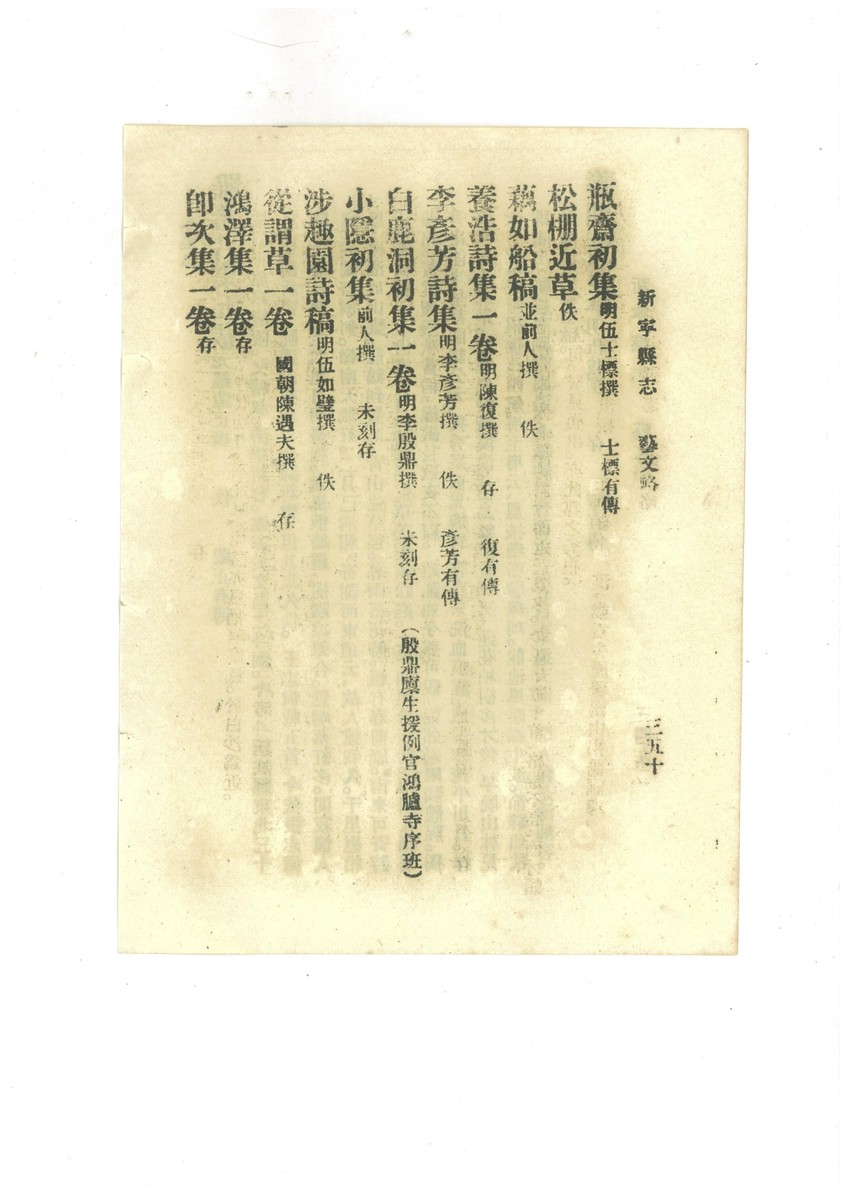 新寧縣志 藝文略 三五十
瓶齋初集 明伍士標撰 士標有傳
松棚近草 佚
藕如船稿 並前人撰 佚
養浩詩集一卷 明陳復撰 存 復有傳
李彥芳詩集 明李彥芳撰 佚 彥芳有傳
白鹿洞初集一卷 明李殷鼎撰 未刻存 (殷鼎廩生援例官鴻臚寺序班)
小隱初集 前人撰 未刻存
涉趣園詩稿 明伍如璧撰 佚
從謂草一卷 國朝陳遇夫撰 存
鴻澤集一卷 存
卽次集一卷 存